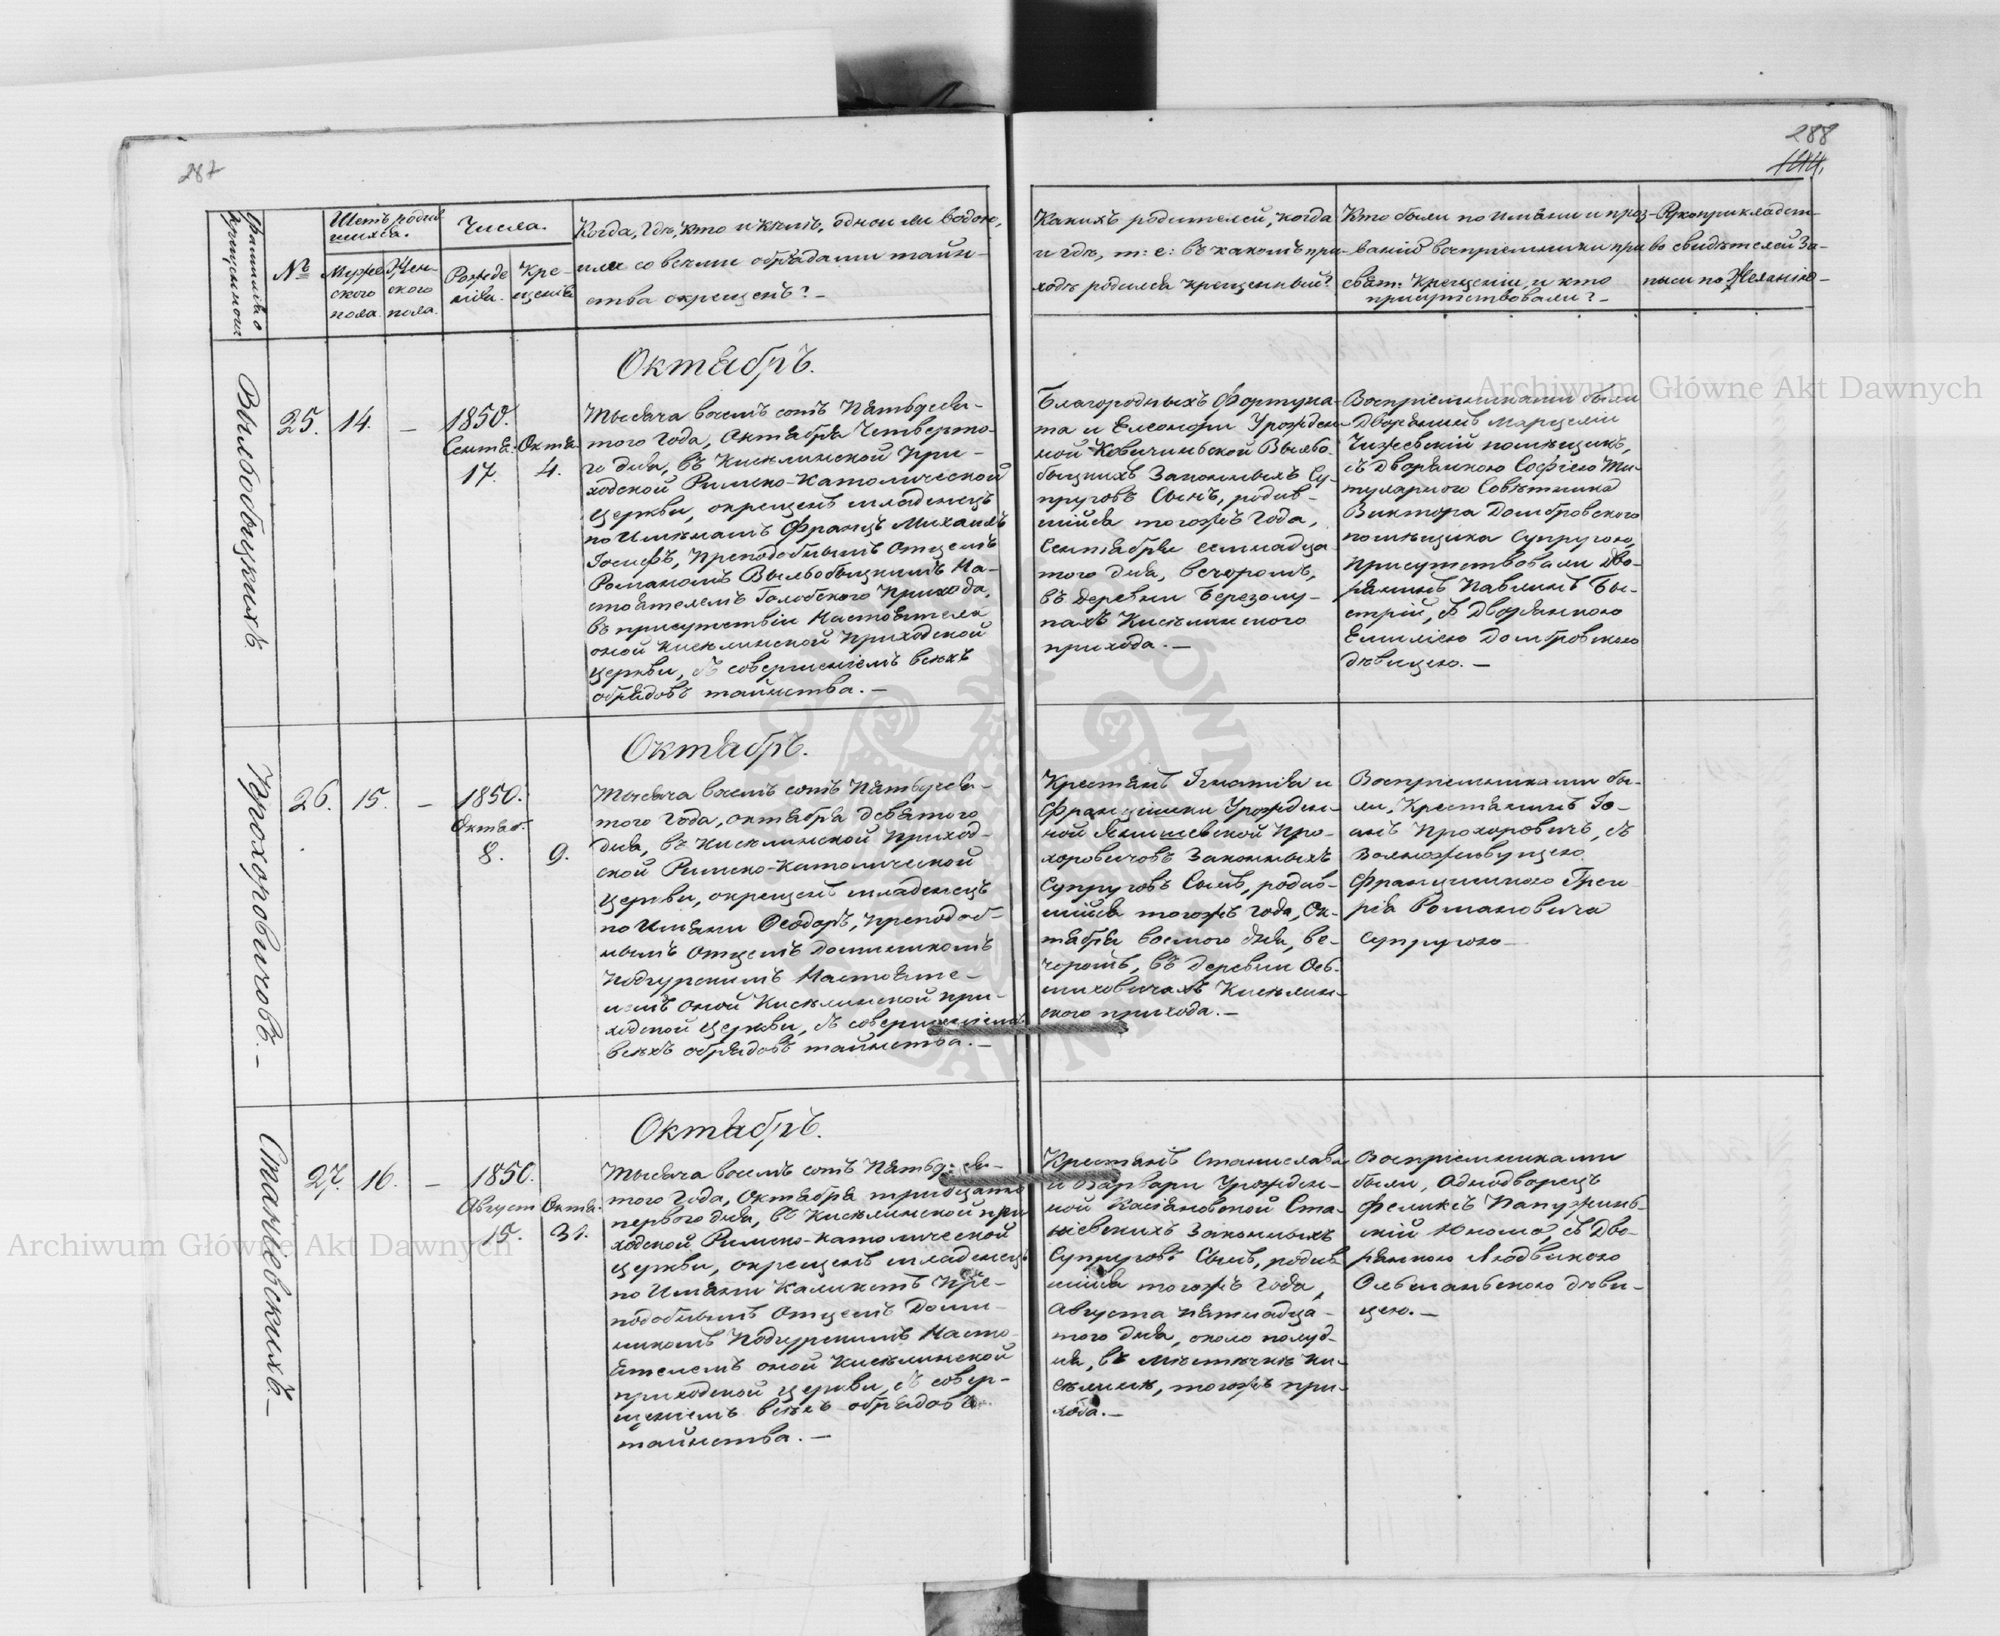 287
288
144.
Фамилию
крещенного
№
Счетъ родив-
шихся.
Мужес-
каго
пола
Жен-
скаго
пола.
Числа.
Рожде
нія.
Кре-
щенія
Когда, гдѣ, кто и кѣмъ, одною ли водою,
или со всѣми обрядами таин-
ства окрещенъ? —
Какихъ родителей, когда
и гдѣ, т: е: въ какомъ при-
ходѣ родился крещенный?
Кто были по имени и проз-
ванію воспріемники при
свят: крещеніи, и кто
присутствовали? —
Рукоприкладст-
во свидѣтелей За-
писи по Желанію —
Archiwum Główne Akt Dawnych
Октябрь.
25.
14.
—
1850.
Сентя.
Октя.
17.
4.
Тысяча восемъ сотъ Пятьдеся-
того Года, Октября Четверто-
го дня, въ Кисѣлинской При-
ходской Римско-Католической
Церкви, окрещенъ младенецъ
по Имѣнамъ Францъ Михаилъ
Іосифъ, Преподобнымъ Отцемъ
Романомъ Вильбобыцкимъ На-
стоятелемъ Голобского Прихода,
въ присутствіи Настоятеля
оной Кисѣлинской Приходской
Церкви, съ совершеніемъ всѣхъ
обрядовъ таинства. —
Благородныхъ Фортуна-
та и Елеоноры Урожден-
ной
законныхъ Су-
пруговъ Сынъ, родив-
шійся тогожъ Года,
Сентября семнадца-
того дня, вечеромъ,
въ деревни Березолу-
пахъ Кисѣлинского
прихода. —
Воспріемниками были
Дворянинъ Марцелій
Чижевскій помѣщикъ,
съ Дворянкою Софіею Ти-
тулярного Совѣтника
Виктора Домбровского
помѣщика Супругою,
присутствовали Дво-
рянинъ Павлинъ Бы-
стрій, съ Дворянкою
Емиліею Домбровскою
дѣвицею. —
Прохоровичовъ —
Октябрь.
26.
15.
—
1850.
Октяб.
8.
9.
Тысяча восемъ сотъ Пятьдеся-
того Года, октября девятого
дня, въ Кисѣлинской Приход-
ской Римско-Католической
Церкви, окрещенъ младенецъ
по Имѣни Ѳеодоръ, Преподоб-
нымъ Отцемъ Доминикомъ
Подгурскимъ Настояте-
лемъ оной Кисѣлинской При-
ходской Церкви, съ совершеніемъ
всѣхъ обрядовъ таинства. —
Крестянъ Игнатія и
Францишки Урожден-
ной Янишевской Про-
хоровичовъ Законныхъ
Супруговъ Сынъ, родив-
шійся тогожъ Года, Ок-
тября восмого дня, ве-
черомъ, въ деревни
Кисѣлин-
ского прихода. —
Воспріемниками бы-
ли, Крестянинъ Іо-
анъ Прохоровичъ, съ
Вольноживущею
Францишкою Григо
рія Романовича
супругою —
Станіевскихъ —
Октябрь.
27.
16.
—
1850.
Август
Октя.
15.
31.
Тысяча восемъ сотъ Пятьдеся-
того Года, Октября тридцать
первого дня, въ Кисѣлинской при
ходской Римско-Католической
Церкви, окрещенъ младенецъ
по Имѣни Каликстъ Пре-
подобнымъ Отцемъ Доми-
никомъ Подгурскимъ Насто-
ятелемъ оной Кисѣлинской
приходской Церкви, съ совер-
шеніемъ всѣхъ обрядовъ
таинства. —
Крестянъ Станислава
и Варвары Урожден-
ной Касяновской Ста-
ніевскихъ Законныхъ
Супруговъ Сынъ, родив
шійся тогожъ Года,
Августа пятнадца-
того дня, около полуд-
ня, въ Мѣстѣчкѣ Ки-
сѣлинѣ, тогожъ при-
хода. —
Воспріемниками
были, Однодворецъ
Феликсъ Папужинь-
скій Юноша, съ Дво-
рянкою Людвикою
Ольшаньскою дѣви-
цею. —
Archiwum Główne Akt Dawnych